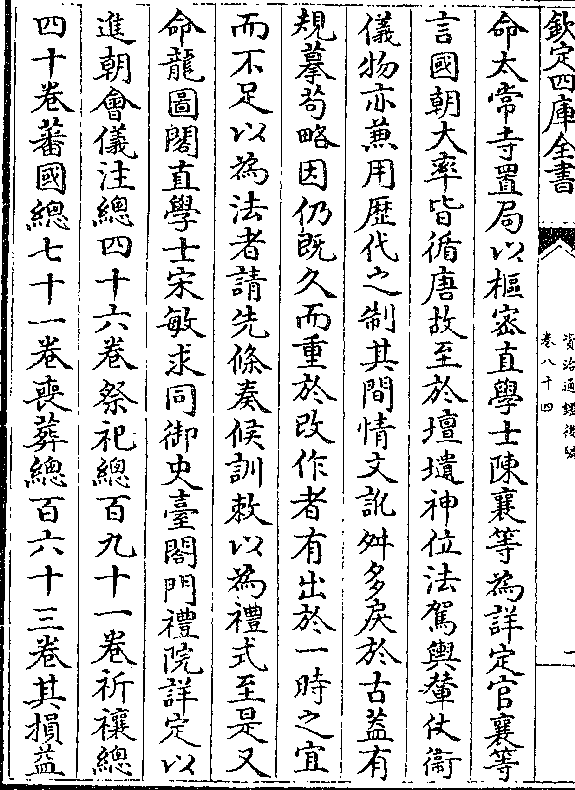 欽定四庫全書
資治通鑑後編
卷八十四
一
命太常寺置局以樞密直學士陳襄等為詳定官襄等
言國朝大率皆循唐故至於壇壝神位法駕輿輦仗衞
儀物亦兼用歷代之制其間情文訛舛多戾於古蓋有
規摹苟略因仍既久而重於改作者有出於一時之宜
而不足以為法者請先條奏候訓敕以為禮式至是又
命龍圖閣直學士宋敏求同御史臺閤門禮院詳定以
進朝會儀注總四十六卷祭祀總百九十一卷祈禳總
四十卷蕃國總七十一卷喪葬總百六十三卷其損益